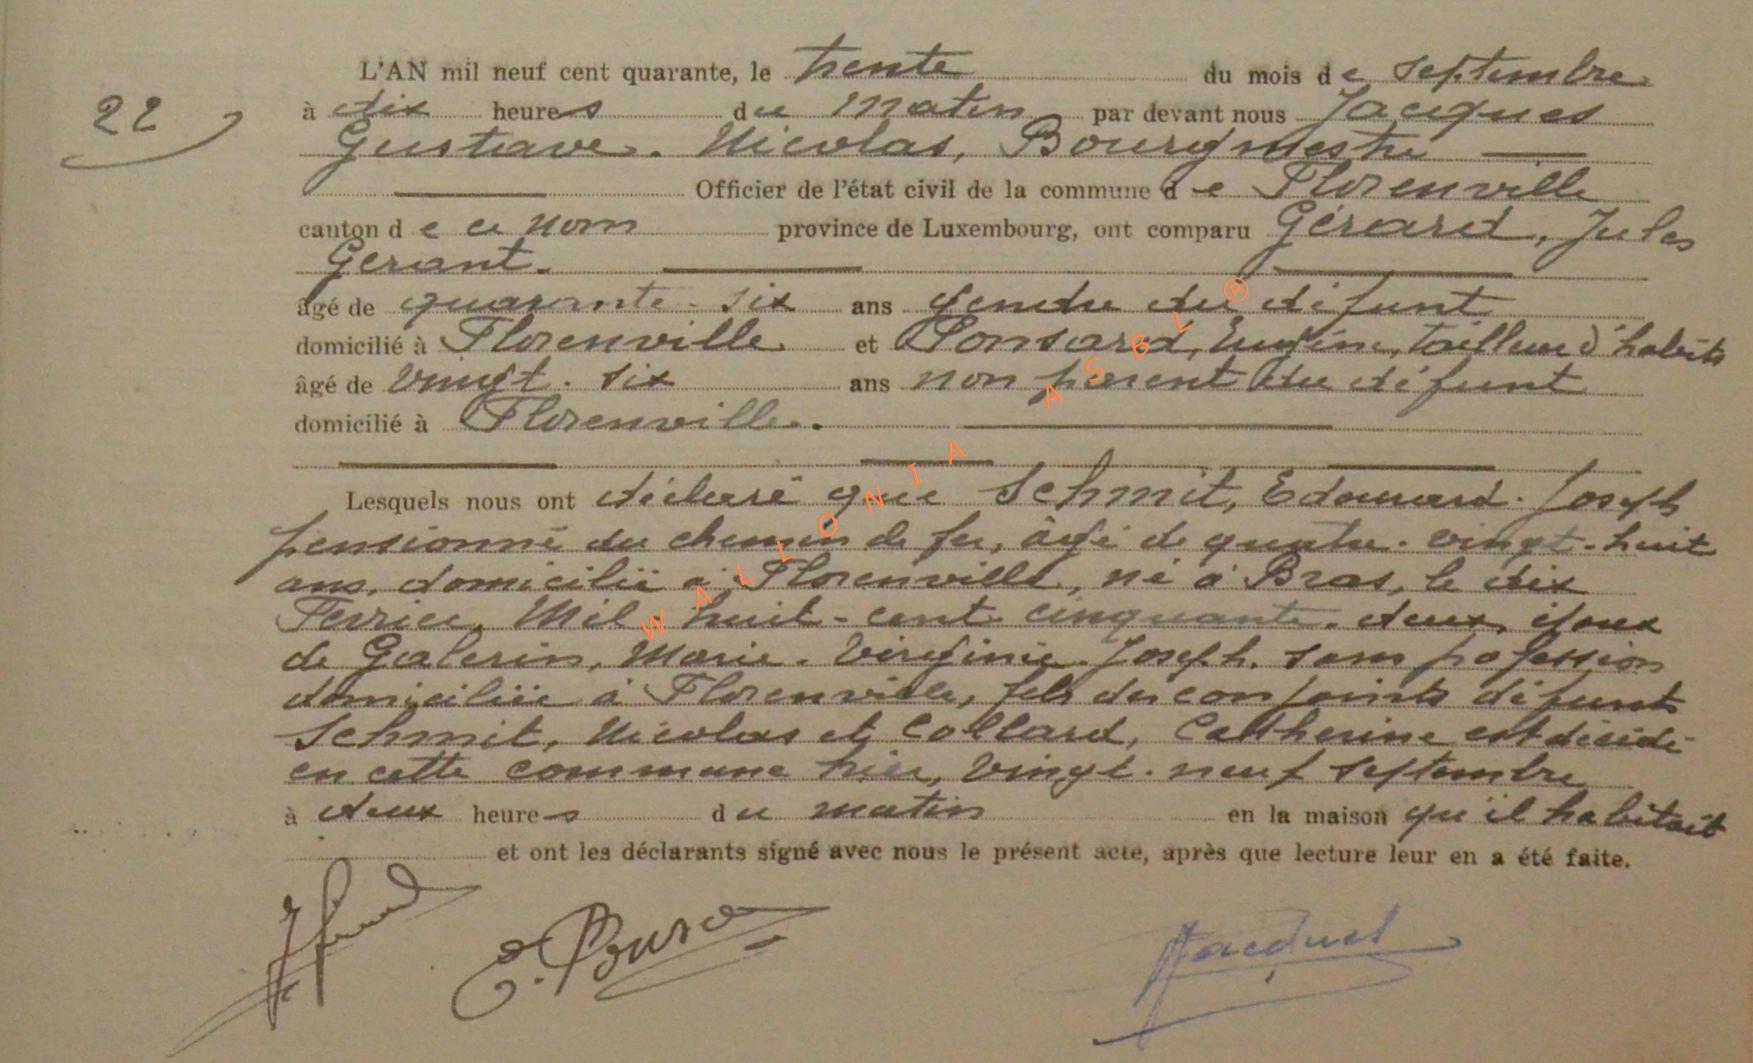 L'AN mil neuf cent quarante, le trente du mois de septembre
22
à dix heures du matin par devant nous Jacques
Gustave. Nicolas, Bourgmestre
Officier de l'état civil de la commune de Florenville
canton de ce nom province de Luxembourg, ont comparu Gérard, Jules
Gérant.
âgé de quarante-six ans Gendre du défunt
domicilié à Florenville et Ponsard, Eugène, tailleur d'habits
âgé de vingt-six ans non parent du défunt
domicilié à Florenville.
Lesquels nous ont déclaré que Schmit, Edouard. Joseph
pensionné du chemin de fer, âgé de quatre-vingt-huit
ans, domicilié à Florenville, né à Bras, le dix
Fevrier, Mil huit-cent cinquante-deux, époux
de Galerin, Marie. Virginie. Joseph. sans profession
domiciliée à Florenville, fils des conjoints défunts
Schmit, Nicolas et Collard, Catherine est décédé
en cette commune hier, vingt-neuf septembre
à deux heures du matin en la maison qu'il habitait
et ont les déclarants signé avec nous le présent acte, après que lecture leur en a été faite.
Jacques
WALLONIA ASBL ®